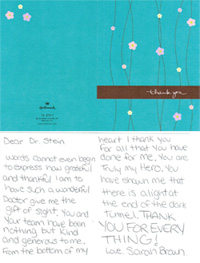 Hallmark
thank you
Dear Dr. Stein
words cannot even begin
to express how grateful
and thankful I am to
have such a wonderful
Doctor give me the
gift of sight. You and
Your team have been
nothing but kind
and generous to me.
From the bottom of my
heart I thank you
for all that You have
done for me. You are
Truly my Hero. You
have shown me that
there is a light at
the end of the dark
tunnel. THANK
YOU FOR EVERY
THING!
Love Sarah Brown